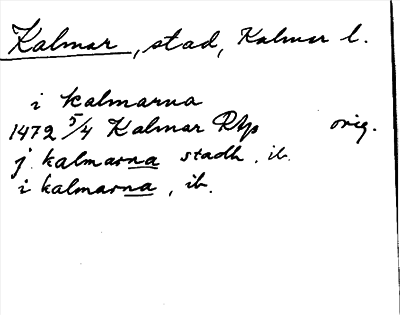 Kalmar, stad, Kalmar l.
i kalmarna
1472 5/4 Kalmar Rtp orig.
j kalmarna stadh, ib.
i kalmarna, ib.